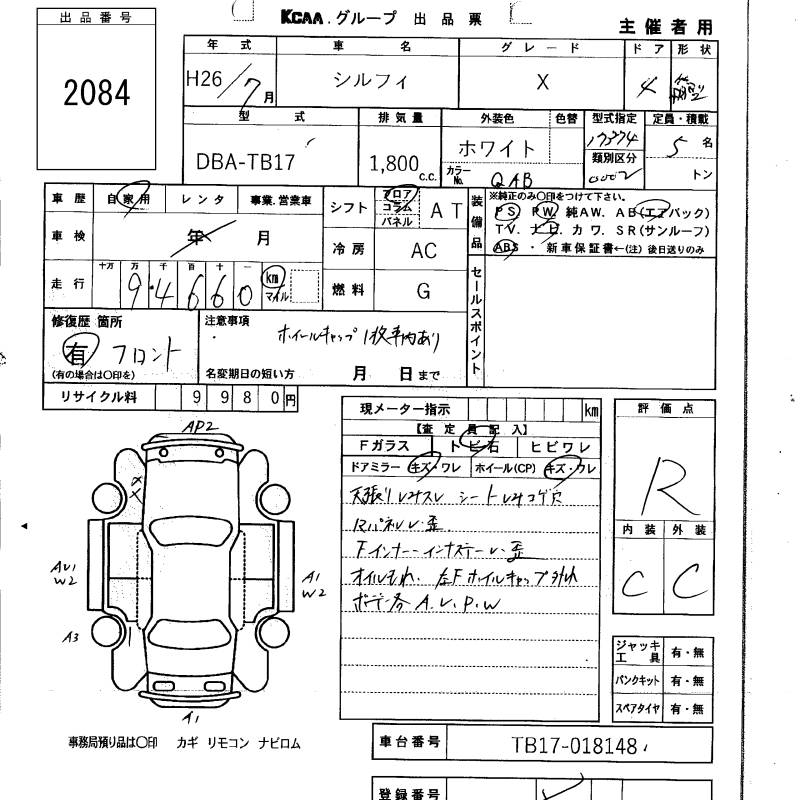 KCAA.グループ 出品票
主催者用
出品番号
2084
年式 車名 グレード ドア 形状
H26/7月 シルフィ X 4
型式 排気量 外装色 色替 型式指定 定員・積載
DBA-TB17 1,800 c.c. ホワイト 17374 5名
カラーNo. QAB 類別区分 0002 トン
車歴 自家用 レンタ 事業.営業車
シフト フロア コラム パネル AT
装備品 ※純正のみ〇印をつけて下さい。
PS PW. 純AW. AB(エアバック)
TV. ナビ. カワ. SR(サンルーフ)
ABS ・ 新車保証書←(注)後日送りのみ
車検 年 月
冷房 AC
走行 十万 万 千 百 十 一
94660 km マイル
燃料 G
セールスポイント
修復歴 箇所
有 フロント
(有の場合は〇印を)
注意事項
ホイールキャップ1枚車内あり
名変期日の短い方 月 日まで
リサイクル料 9980円
現メーター指示 km
【査定員記入】
Fガラス トビ石 ヒビワレ
ドアミラー キズ・ワレ ホイール(CP) キズ・ワレ
天張りレ シートレ コゲ穴
Rパネルレ・歪
Fインナー・インナステーレ・歪
オイルもれ. 左Fホイールキャップ外れ
ボデー各A.U.P.W
評価点
R
内装 外装
C C
AP2
AU1
W2
A1
W2
A3
A1
ジャッキ工具 有・無
パンクキット 有・無
スペアタイヤ 有・無
事務局預り品は〇印 カギ リモコン ナビロム
車台番号 TB17-018148
登録番号